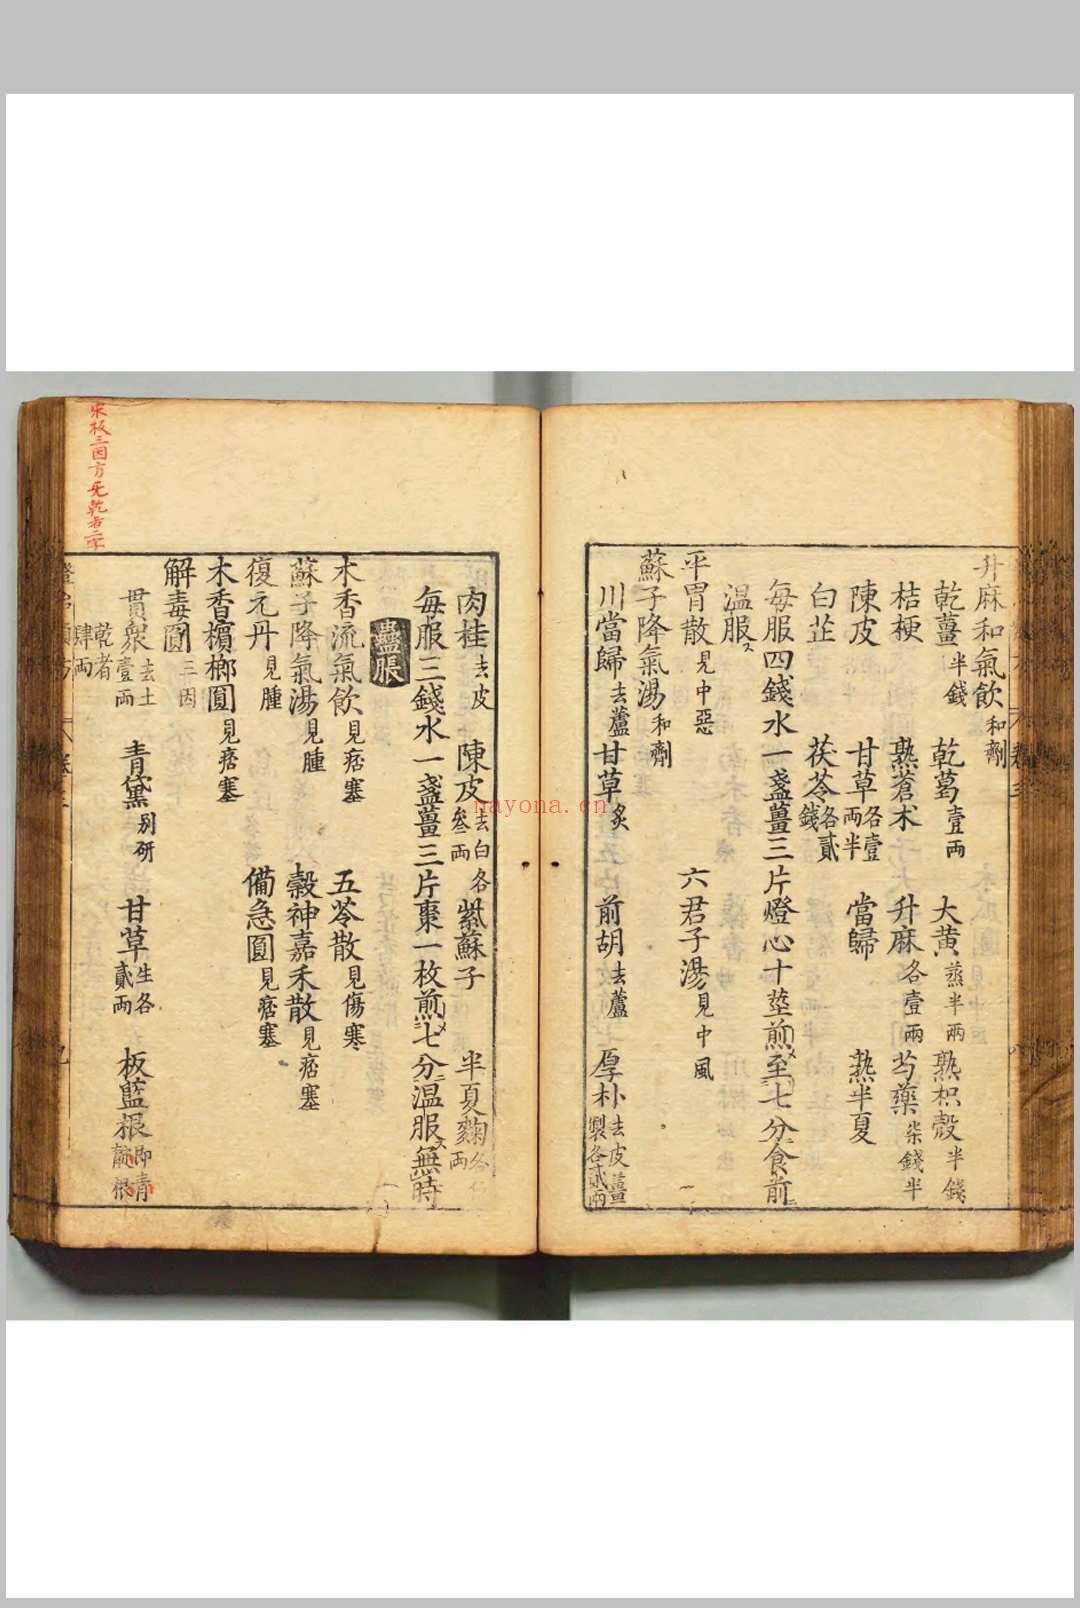 升麻和氣飲和劑
乾薑半錢 乾葛壹兩 大黃蒸半兩 熟枳殼半錢
桔梗 熟蒼朮 升麻各壹兩 芍藥柒錢半
陳皮 甘草各壹兩半 當歸 熟半夏
白芷 茯苓各貳錢
每服四錢水一盞薑三片燈心十莖煎至七分食前
溫服
平胃散見中惡 六君子湯見中風
蘇子降氣湯和劑
川當歸去蘆 甘草炙 前胡去蘆 厚朴去皮薑製各貳兩
肉桂去皮 陳皮去白各叄兩 紫蘇子 半夏麴各 兩
每服三錢水一盞薑三片棗一枚煎七分溫服無時
蠱脹
木香流氣飲見痞塞 五苓散見傷寒
蘇子降氣湯見腫 穀神嘉禾散見痞塞
復元丹見腫 備急圓見痞塞
木香檳榔圓見痞塞
解毒圓三因
貫衆去土壹兩 青黛別研 甘草生各貳兩 板藍根即青靛根
乾者肆兩
宋板三因方无乾者二字
nayona.cn